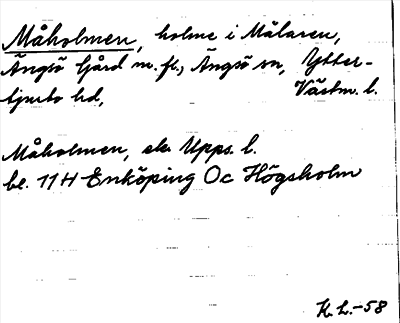 Måholmen, holme i Mälaren,
Ängsö Gård m.fl., Ängsö sn, Ytter-
tjurbo hd, Västm. l.
Måholmen, ek. Upps. l.
bl. 11 H Enköping Oc Högsholm
K.L.-58